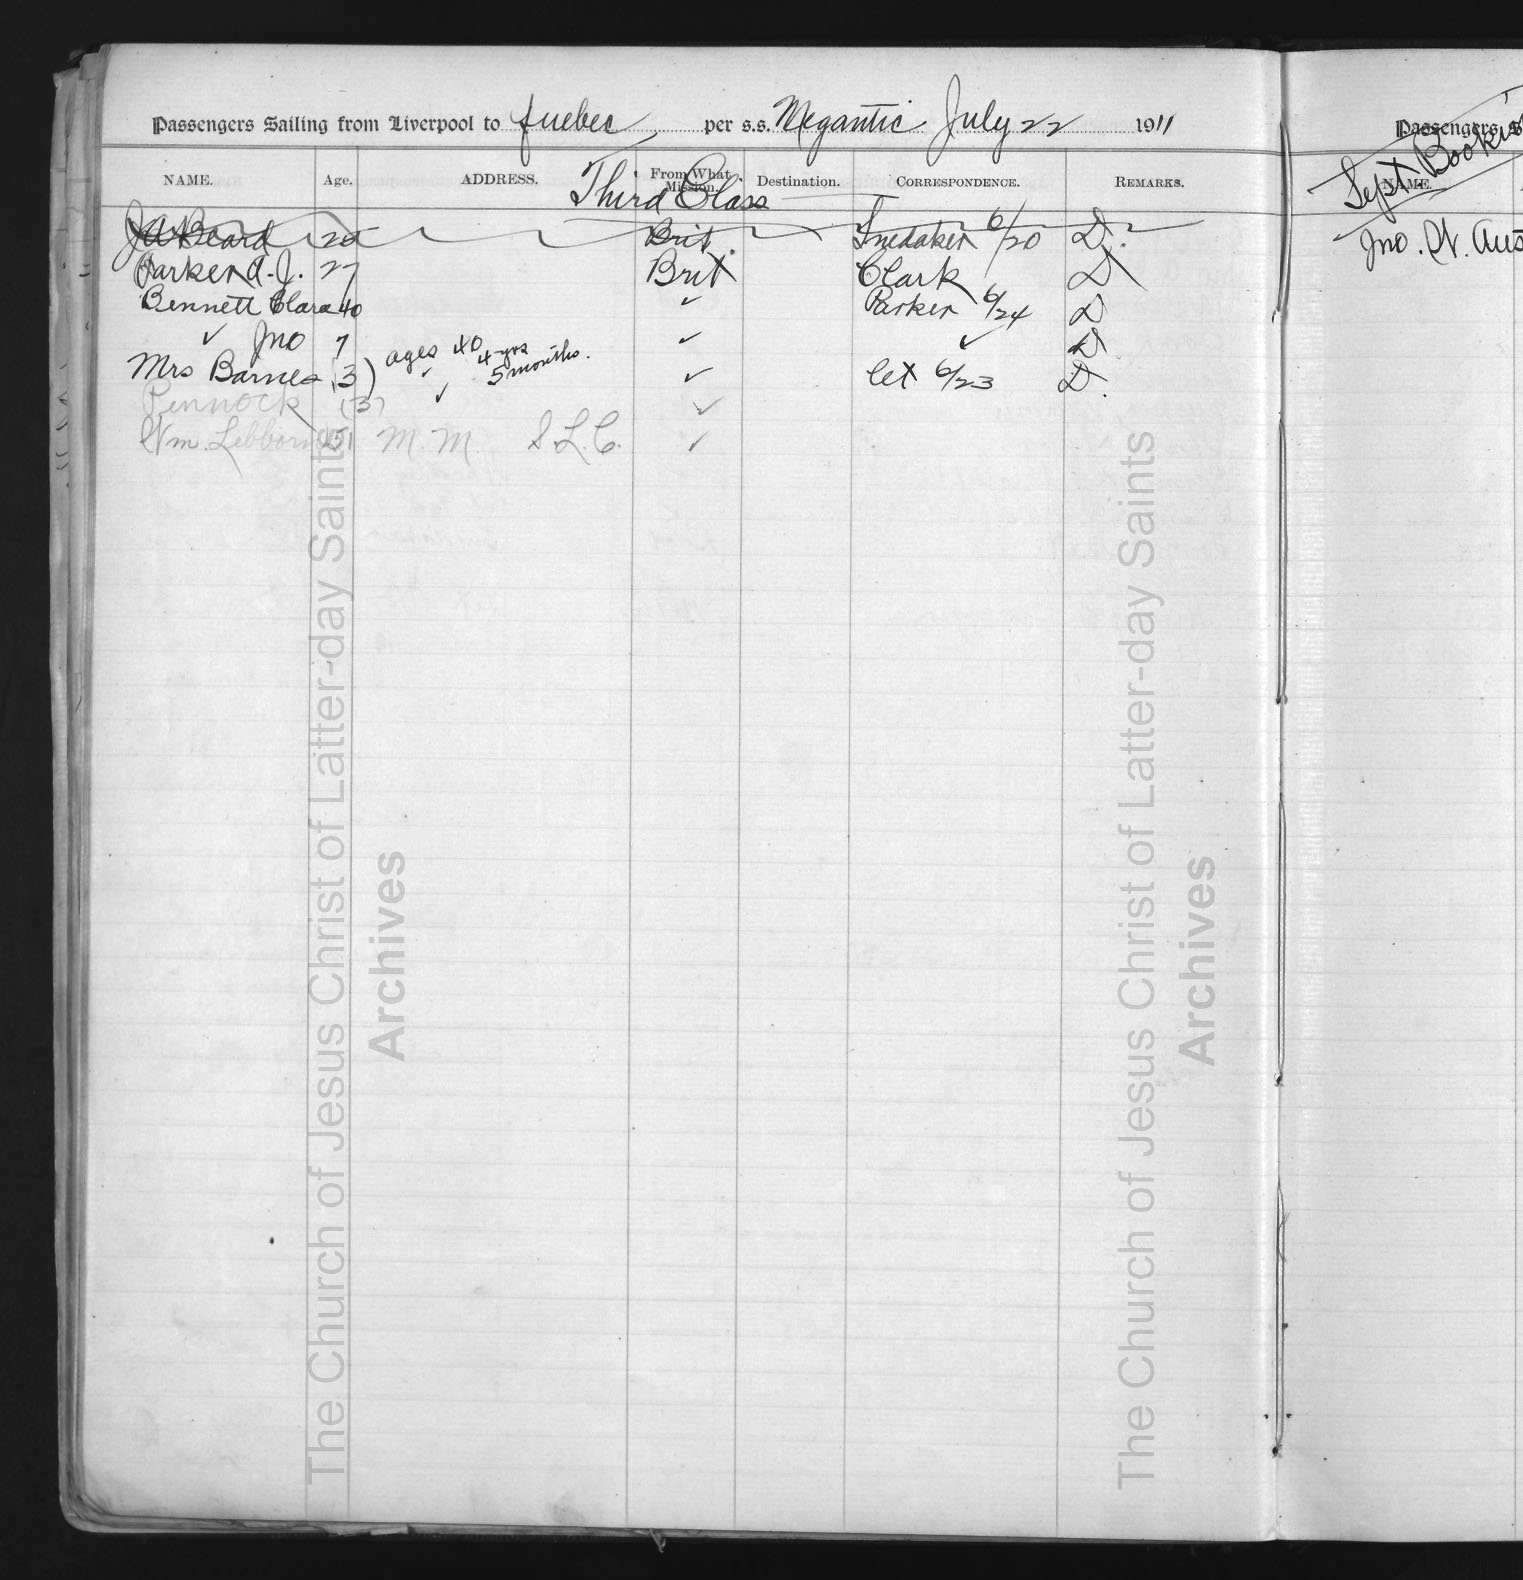 Passengers Sailing from Liverpool to Quebec per s.s. Megantic July 22 1911
NAME. Age. ADDRESS. From What Mission. Destination. CORRESPONDENCE. REMARKS.
Third Class
J A Beard 25 Brit. Snedaker 6/20 D.
Parker A. J. 27 Brit Clark D
Bennett Clara 40 ✓ Parker 6/24 D
✓ Jno 7 ✓ ✓ D
Mrs Barnes (3) ages 40 4 yrs 5 months. ✓ let 6/23 D.
Pennock (3) ✓ ✓
Wm. 51 M. M. S.L.C. ✓
Passengers
Sept. Booki
NAME.
Jno. W. Aus
The Church of Jesus Christ of Latter-day Saints
Archives
The Church of Jesus Christ of Latter-day Saints
Archives